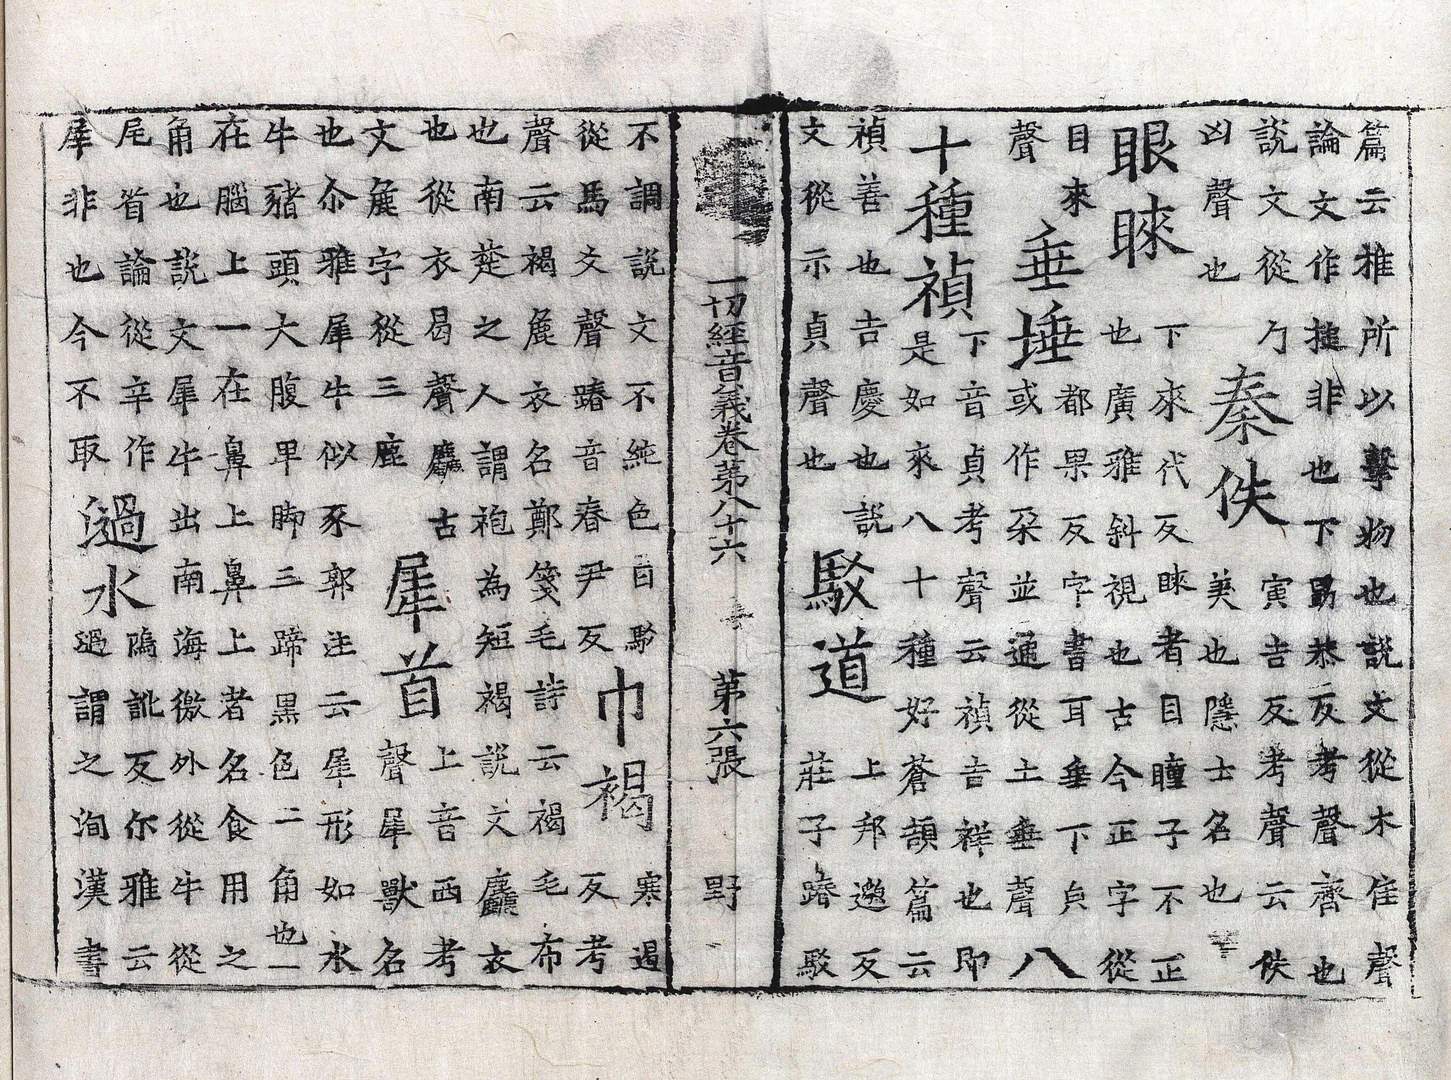 篇云椎所以擊物也說文從木隹聲
論文作搥非也下勗恭反考聲齊也
說文從勹
凶聲也
秦佚
寅吉反考聲云佚
美也隱士名也
眼睞
下來代反睞者目瞳子不正
也廣雅斜視也古今正字從
目來
聲
垂埵
都果反字書耳垂下皃
或作朶並通從土垂聲
八
十種禎
下音貞考聲云禎吉祥也即
是如來八十種好蒼頡篇云
禎善也吉慶也說
文從示貞聲也
駁道
上邦邈反
莊子踳駁
一切經音義卷第八十六 第六張 野
不調說文不純色曰駁
從馬爻聲踳音春尹反
巾褐
寒遏
反考
聲云褐麁衣名鄭箋毛詩云褐毛布
也南楚之人謂袍為短褐說文麤衣
也從衣曷聲麤古
文麁字從三鹿
犀首
上音西考
聲犀獸名
也尒雅犀牛似豕郭注云犀形如水
牛豬頭大腹卑脚三蹄黑色二角也一
在腦上一在鼻上鼻上者名食用之
角也說文犀牛出南海徼外從牛從
尾省論從辛作
犀非也今不取
過水
嗚訛反尒雅云
過謂之洵漢書